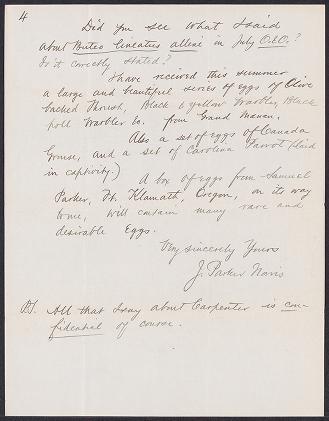 4
Did you see what I said
about Buteo lineatus alleni in July O. & O.?
Is it correctly stated?
I have received this summer
a large and beautiful series of eggs of Olive
backed Thrush, Black & yellow Warbler, Black
poll Warbler &c. from Grand Manan.
Also a set of eggs of Canada
Grouse, and a set of Carolina Parrot (laid
in captivity.)
A box of eggs from Samuel
Parker, Ft. Klamath, Oregon, on its way
to me, will contain many rare and
desirable Eggs.
Very sincerely Yours
J. Parker Norris
P.S. All that I say about Carpenter is con-
fidential of course.